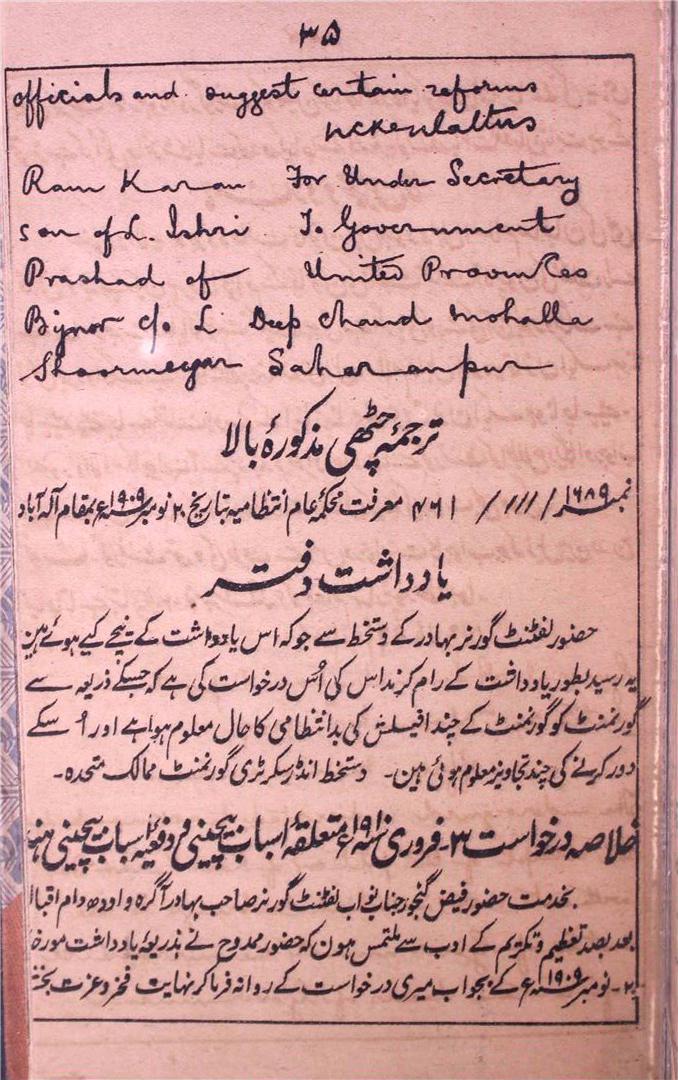 ۳۵
officials and suggest certain reforms
Ram Karan For Under Secretary
son of L. Ishri To Government
Prashad of United Provinces
Bijnor c/o L Deep chand mohalla
Saharanpur
ترجمہ چٹھی مذکورۂ بالا
نمبر ۱۶۸۹ / ۱۱۱ / ۴۶۱ معرفت محکمۂ عام انتظامیہ بتاریخ ۲۰ نومبر ۱۹۰۹ء بمقام آلہ آباد
یادداشت دفتر
حضور لفٹنٹ گورنر بہادر کے دستخط سے جو کہ اس یادداشت کے نیچے کیے ہوئے ہین
یہ رسید بطور یادداشت کے رام کرنداس کی اُس درخواست کی ہے کہ جسکے ذریعہ سے
گورنمنٹ کو گورنمنٹ کے چند افیسلش کی بدانتظامی کا حال معلوم ہوا ہے اور اُسکے
دور کرنے کی چند تجاویز معلوم ہوئی ہین۔ دستخط انڈر سکرٹری گورنمنٹ ممالک متحدہ۔
خلاصہ درخواست ۳۔ فروری سنہ ۱۹۱۰ء متعلقۂ اسباب بیچینی و دفعیۂ اسباب بیچینی ہند
بخدمت حضور فیض گنجور جناب نواب لفٹنٹ گورنر صاحب بہادر آگرہ و اودھ دام اقبالہ
بعد بصد تعظیم و تکریم کے ادب سے ملتمس ہون کہ حضور ممدوح نے بذریعۂ یادداشت مورخہ
۲۰۔ نومبر سنہ ۱۹۰۹ء کے بجواب میری درخواست کے روانہ فرما کر نہایت فخر و عزت بخشے